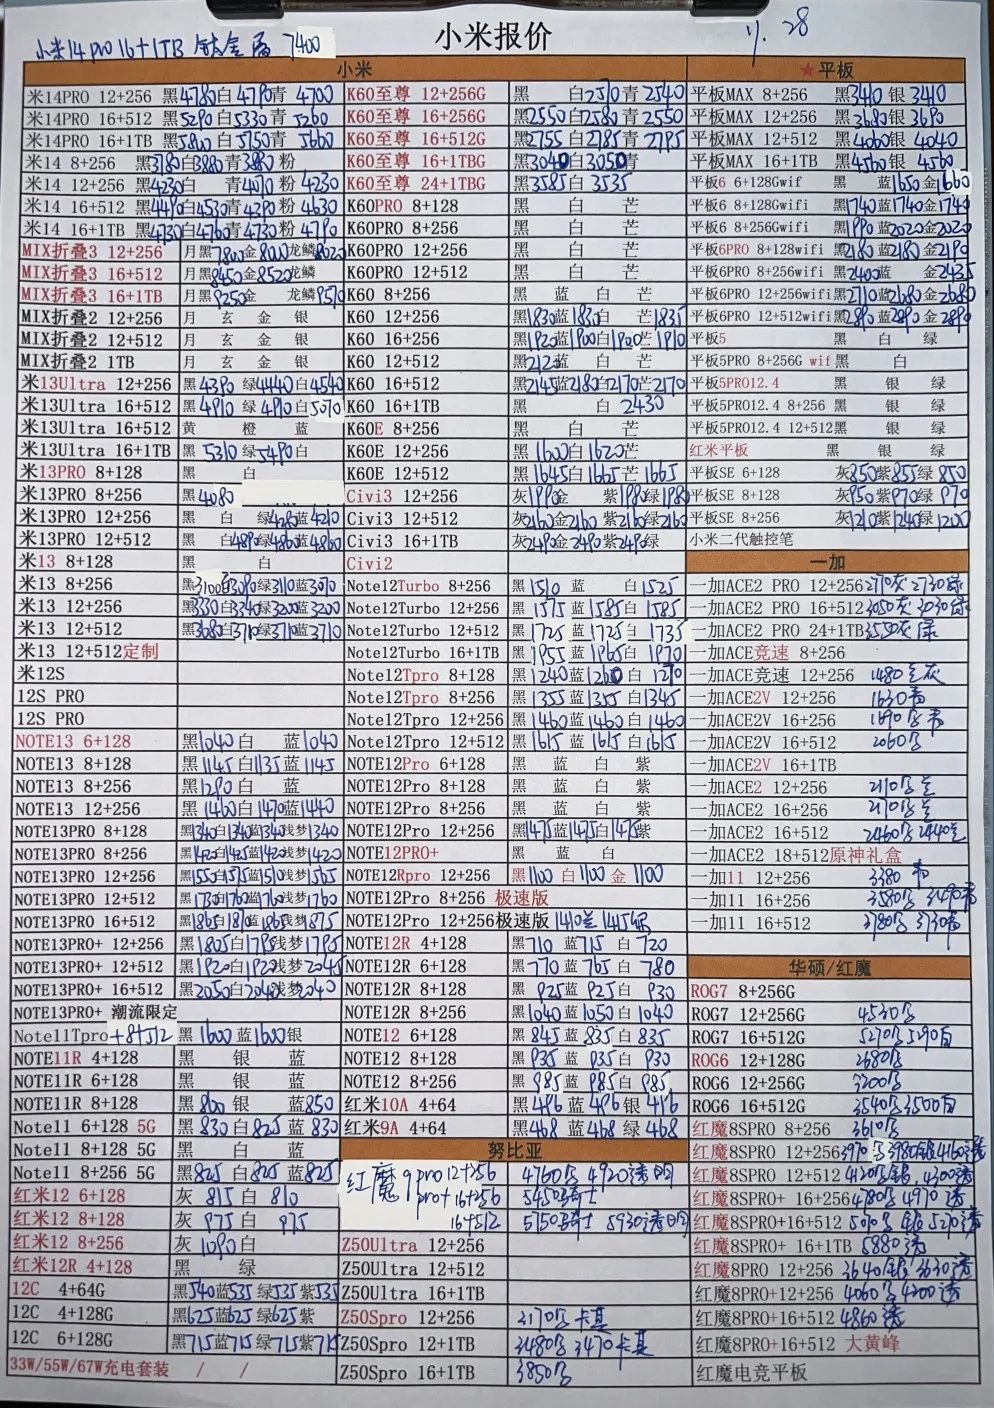 小米报价
11.28
小米14pro 16+1TB 钛金属 7400
小米
米14PRO 12+256 黑4780白4790青 4700
米14PRO 16+512 黑5290白5330青5260
米14PRO 16+1TB 黑5800白5750青5600
米14 8+256 黑3780白3880青3880粉
米14 12+256 黑4230白 青4070粉 4230
米14 16+512 黑4490白4530青4390粉 4630
米14 16+1TB 黑4730白4760青4730粉 4790
MIX折叠3 12+256 月黑7800金8000龙鳞8020
MIX折叠3 16+512 月黑8450金8520龙鳞
MIX折叠3 16+1TB 月黑9250金 龙鳞9510
MIX折叠2 12+256 月 玄 金 银
MIX折叠2 12+512 月 玄 金 银
MIX折叠2 1TB 月 玄 金 银
米13Ultra 12+256 黑4390 绿4440白4540
米13Ultra 16+512 黑4910 绿4910白5070
米13Ultra 16+512 黄 橙 蓝
米13Ultra 16+1TB 黑5310绿5490白
米13PRO 8+128 黑 白
米13PRO 8+256 黑4080
米13PRO 12+256 黑 白 绿4210蓝4210
米13PRO 12+512 黑 白4890绿4860蓝4860
米13 8+128 黑 白
米13 8+256 黑3100白3090绿3110蓝3070
米13 12+256 黑3330白3340绿3200蓝3200
米13 12+512 黑3680白3710绿3710蓝3710
米13 12+512定制
米12S
12S PRO
12S PRO
NOTE13 6+128 黑1040白 蓝1040
NOTE13 8+128 黑1145白1135蓝1145
NOTE13 8+256 黑1290白 蓝
NOTE13 12+256 黑1460白1470蓝1440
NOTE13PRO 8+128 黑1340白1340蓝1340浅梦1340
NOTE13PRO 8+256 黑1420白1425蓝1420浅梦1420
NOTE13PRO 12+256 黑1550白1575蓝1510浅梦1565
NOTE13PRO 12+512 黑1730白1760蓝1760浅梦1760
NOTE13PRO 16+512 黑1865白1870蓝1865浅梦1875
NOTE13PRO+ 12+256 黑1805白1795浅梦1795
NOTE13PRO+ 12+512 黑1920白1920浅梦2045
NOTE13PRO+ 16+512 黑2050白2040浅梦2040
NOTE13PRO+ 潮流限定
Note11Tpro+8+512 黑1600蓝1600银
NOTE11R 4+128 黑 银 蓝
NOTE11R 6+128 黑 银 蓝
NOTE11R 8+128 黑800银 蓝850
Note11 6+128 5G 黑830白825蓝 830
Note11 8+128 5G 黑 白 蓝
Note11 8+256 5G 黑825白825蓝825
红米12 6+128 灰 815白 810
红米12 8+128 灰 975白 975
红米12 8+256 灰 1090白
红米12R 4+128 黑 绿
12C 4+64G 黑540蓝535绿535紫535
12C 4+128G 黑625蓝625绿625紫
12C 6+128G 黑715蓝715绿715紫715
33W/55W/67W充电套装 / /
K60至尊 12+256G 黑 白2510青2540
K60至尊 16+256G 黑2550白2580青2550
K60至尊 16+512G 黑2755白2785青2795
K60至尊 16+1TBG 黑3040白3050青
K60至尊 24+1TBG 黑3585白 3535
K60PRO 8+128 黑 白 芒
K60PRO 8+256 黑 白 芒
K60PRO 12+256 黑 白 芒
K60PRO 12+512 黑 白 芒
K60 8+256 黑 蓝 白 芒
K60 12+256 黑1830蓝1830白 芒1835
K60 16+256 黑1920蓝1900白1900芒1910
K60 12+512 黑2125蓝 白 芒
K60 16+512 黑2145蓝2180白2170芒2170
K60 16+1TB 黑 白 2430
K60E 8+256 黑 白 芒
K60E 12+256 黑1600白1620芒
K60E 12+512 黑1645白1665芒1665
Civi3 12+256 灰1990金 紫1980绿1980
Civi3 12+512 灰2160金2160紫2160绿2160
Civi3 16+1TB 灰2490金2490紫2490绿
Civi2
Note12Turbo 8+256 黑1510蓝 白1525
Note12Turbo 12+256 黑1575蓝1585白1585
Note12Turbo 12+512 黑1725蓝1725白1735
Note12Turbo 16+1TB 黑1955蓝1965白1970
Note12Tpro 8+128 黑1240蓝1260白 1270
Note12Tpro 8+256 黑1355蓝1355白1345
Note12Tpro 12+256 黑1460蓝1460白1460
Note12Tpro 12+512 黑1615蓝1615白1615
NOTE12Pro 6+128 黑 蓝 白 紫
NOTE12Pro 8+128 黑 蓝 白 紫
NOTE12Pro 8+256 黑 蓝 白 紫
NOTE12Pro 12+256 黑1475蓝1475白1475紫
NOTE12PRO+ 黑 蓝 白
NOTE12Rpro 12+256 黑1100白1100金 1100
NOTE12Pro 8+256 极速版
NOTE12Pro 12+256极速版 1410兰
NOTE12R 4+128 黑710蓝715白 720
NOTE12R 6+128 黑770蓝765白 780
NOTE12R 8+128 黑925蓝925白 930
NOTE12R 8+256 黑1040蓝1050白 1040
NOTE12 6+128 黑845蓝835白 835
NOTE12 8+128 黑935蓝935白 930
NOTE12 8+256 黑985蓝985白 985
红米10A 4+64 黑496蓝496银 496
红米9A 4+64 黑468蓝468绿 468
努比亚
红魔9pro 12+256 4760 4920透明
pro+16+256 5450骑士
16+512 5750骑士 5930透明
Z50Ultra 12+256
Z50Ultra 12+512
Z50Ultra 16+1TB
Z50Spro 12+256 3170 卡其
Z50Spro 12+1TB 3480 3470卡其
Z50Spro 16+1TB 3850
★平板
平板MAX 8+256 黑3410银 3410
平板MAX 12+256 黑3680银 3690
平板MAX 12+512 黑4060银 4040
平板MAX 16+1TB 黑4560银 4560
平板6 6+128Gwif 黑 蓝1650金1660
平板6 8+128Gwif 黑1740蓝1740金1740
平板6 8+256Gwif 黑1990蓝2020金2020
平板6PRO 8+128wifi 黑2180蓝2180金2190
平板6PRO 8+256wifi 黑2400蓝 金2435
平板6PRO 12+256wifi黑2710蓝2680金2680
平板6PRO 12+512wifi黑2890蓝2890金2890
平板5 黑 白 绿
平板5PRO 8+256G wif黑 白
平板5PRO12.4 黑 银 绿
平板5PRO12.4 8+256 黑 银 绿
平板5PRO12.4 12+512黑 银 绿
红米平板 黑 银 绿
平板SE 6+128 灰850紫855绿 850
平板SE 8+128 灰950紫970绿 970
平板SE 8+256 灰1210紫1240绿1200
小米二代触控笔
一加
一加ACE2 PRO 12+256 2710灰 2730绿
一加ACE2 PRO 16+512 3050灰 3030绿
一加ACE2 PRO 24+1TB 3550灰绿
一加ACE竞速 8+256
一加ACE竞速 12+256 1480兰灰
一加ACE2V 12+256 1630青
一加ACE2V 16+256 1690 青
一加ACE2V 16+512 2060
一加ACE2V 16+1TB
一加ACE2 12+256 2170 兰
一加ACE2 16+256 2170 兰
一加ACE2 16+512 2460 2440兰
一加ACE2 18+512原神礼盒
一加11 12+256 3380 青
一加11 16+256 3580 3490青
一加11 16+512 3780 3730青
华硕/红魔
ROG7 8+256G
ROG7 12+256G 4530
ROG7 16+512G 5270 5290白
ROG6 12+128G 2680
ROG6 12+256G 3200
ROG6 16+512G 3540 3500白
红魔8SPRO 8+256 3610
红魔8SPRO 12+256 3970 3980银 4160透
红魔8SPRO 12+512 4120银 4300透
红魔8SPRO+ 16+256 4780 4970 透
红魔8SPRO+16+512 5070 银 5270透
红魔8SPRO+ 16+1TB 5880透
红魔8PRO 12+256 3640银 3630透
红魔8PRO+12+256 4060 4200透
红魔8PRO+16+512 4860透
红魔8PRO+16+512 大黄蜂
红魔电竞平板